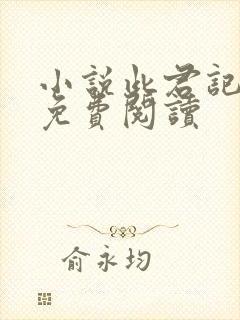 小說此君記
免費閱讀
俞永均